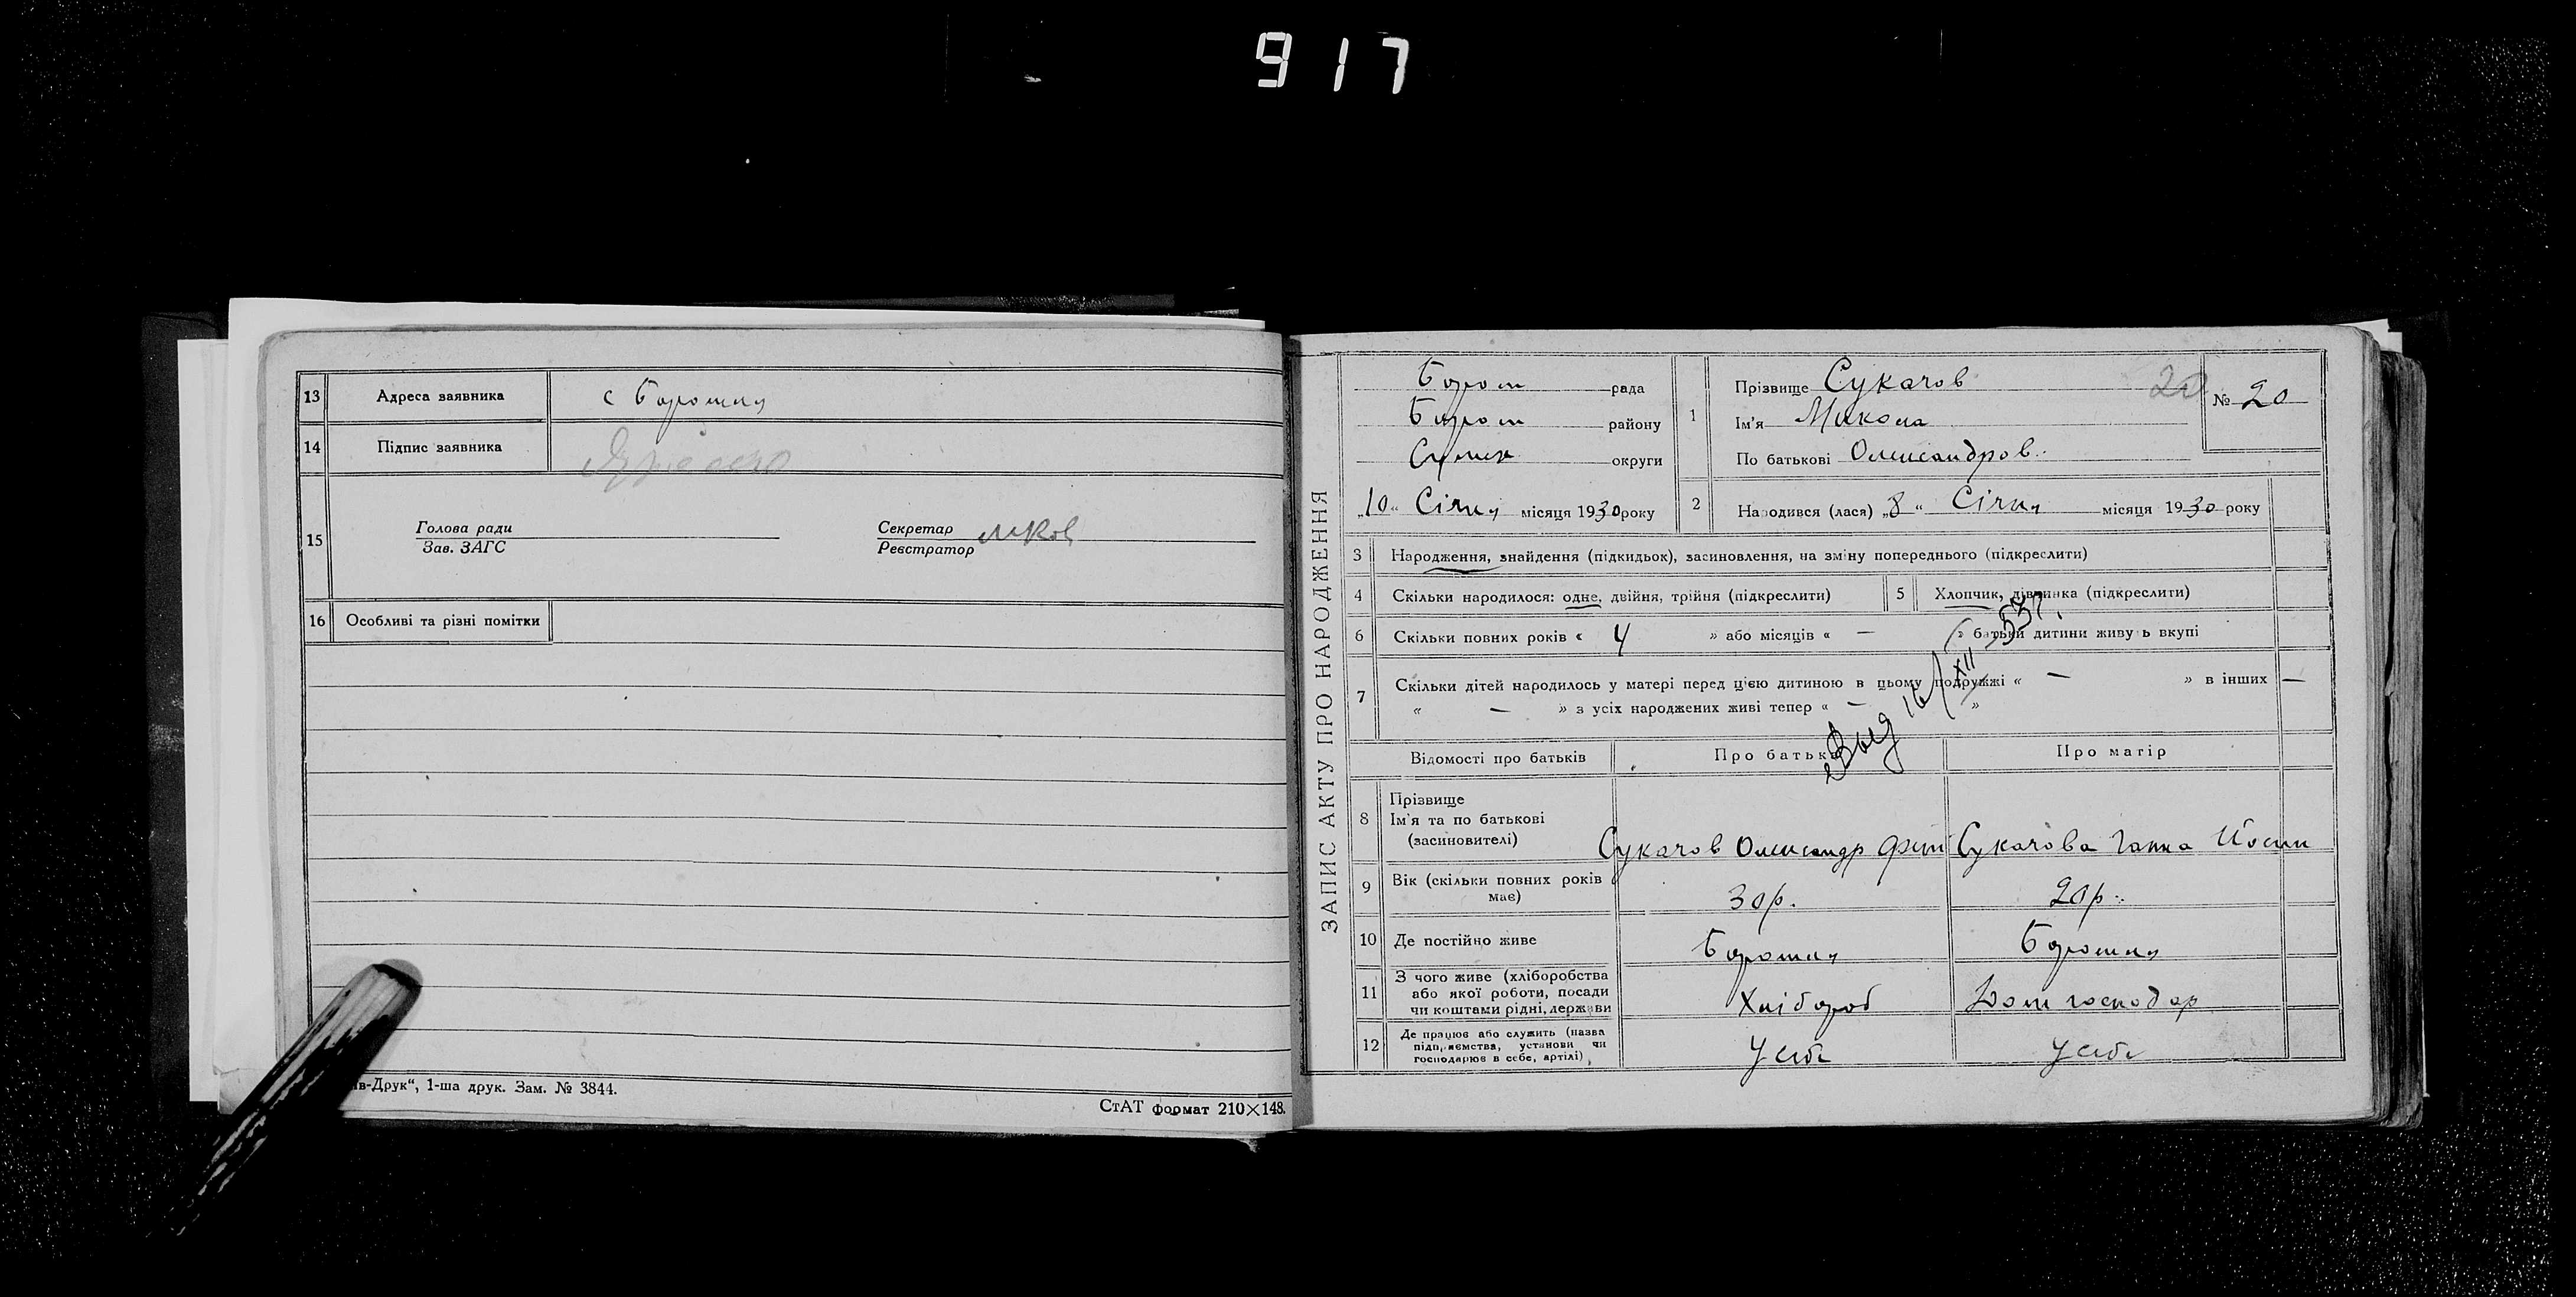 917
13 Адреса заявника с Боромля
14 Підпис заявника
15 Голова ради
Зав. ЗАГС
Секретар
Реєстратор
16 Особливі та різні помітки
в-Друк“, 1-ша друк. Зам. № 3844.
СтАТ формат 210×148.
ЗАПИС АКТУ ПРО НАРОДЖЕННЯ
Бором рада
Бором району
Сумск округи
„10“ Січня місяця 1930 року
1 Прізвище Сукачов
Ім'я Микола
По батькові Олександров.
20
№ 20
2 Народився (лася) „8“ Січня місяця 1930 року
3 Народження, знайдення (підкидьок), засиновлення, на зміну попереднього (підкреслити)
4 Скільки народилося: одне, двійня, трійня (підкреслити)
5 Хлопчик, дівчинка (підкреслити)
6 Скільки повних років « 4 » або місяців « — » батьки дитини живуть вкупі
7 Скільки дітей народилось у матері перед цією дитиною в цьому подружжі « — » в інших —
« — » з усіх народжених живі тепер « — »
Выд 16/XII-53г.
Відомості про батьків Про батька Про матір
8 Прізвище
Ім'я та по батькові
(засиновителі)
Сукачов Олександр Сукачова Ганна Йосип
9 Вік (скільки повних років
має)
30р. 20р.
10 Де постійно живе Боромля Боромля
11 З чого живе (хліборобства
або якої роботи, посади
чи коштами рідні, держави
Хлібороб Дом господар
12 Де працює або служить (назва
підприємства, установи чи
господарює в себе, артілі)
У себе У себе